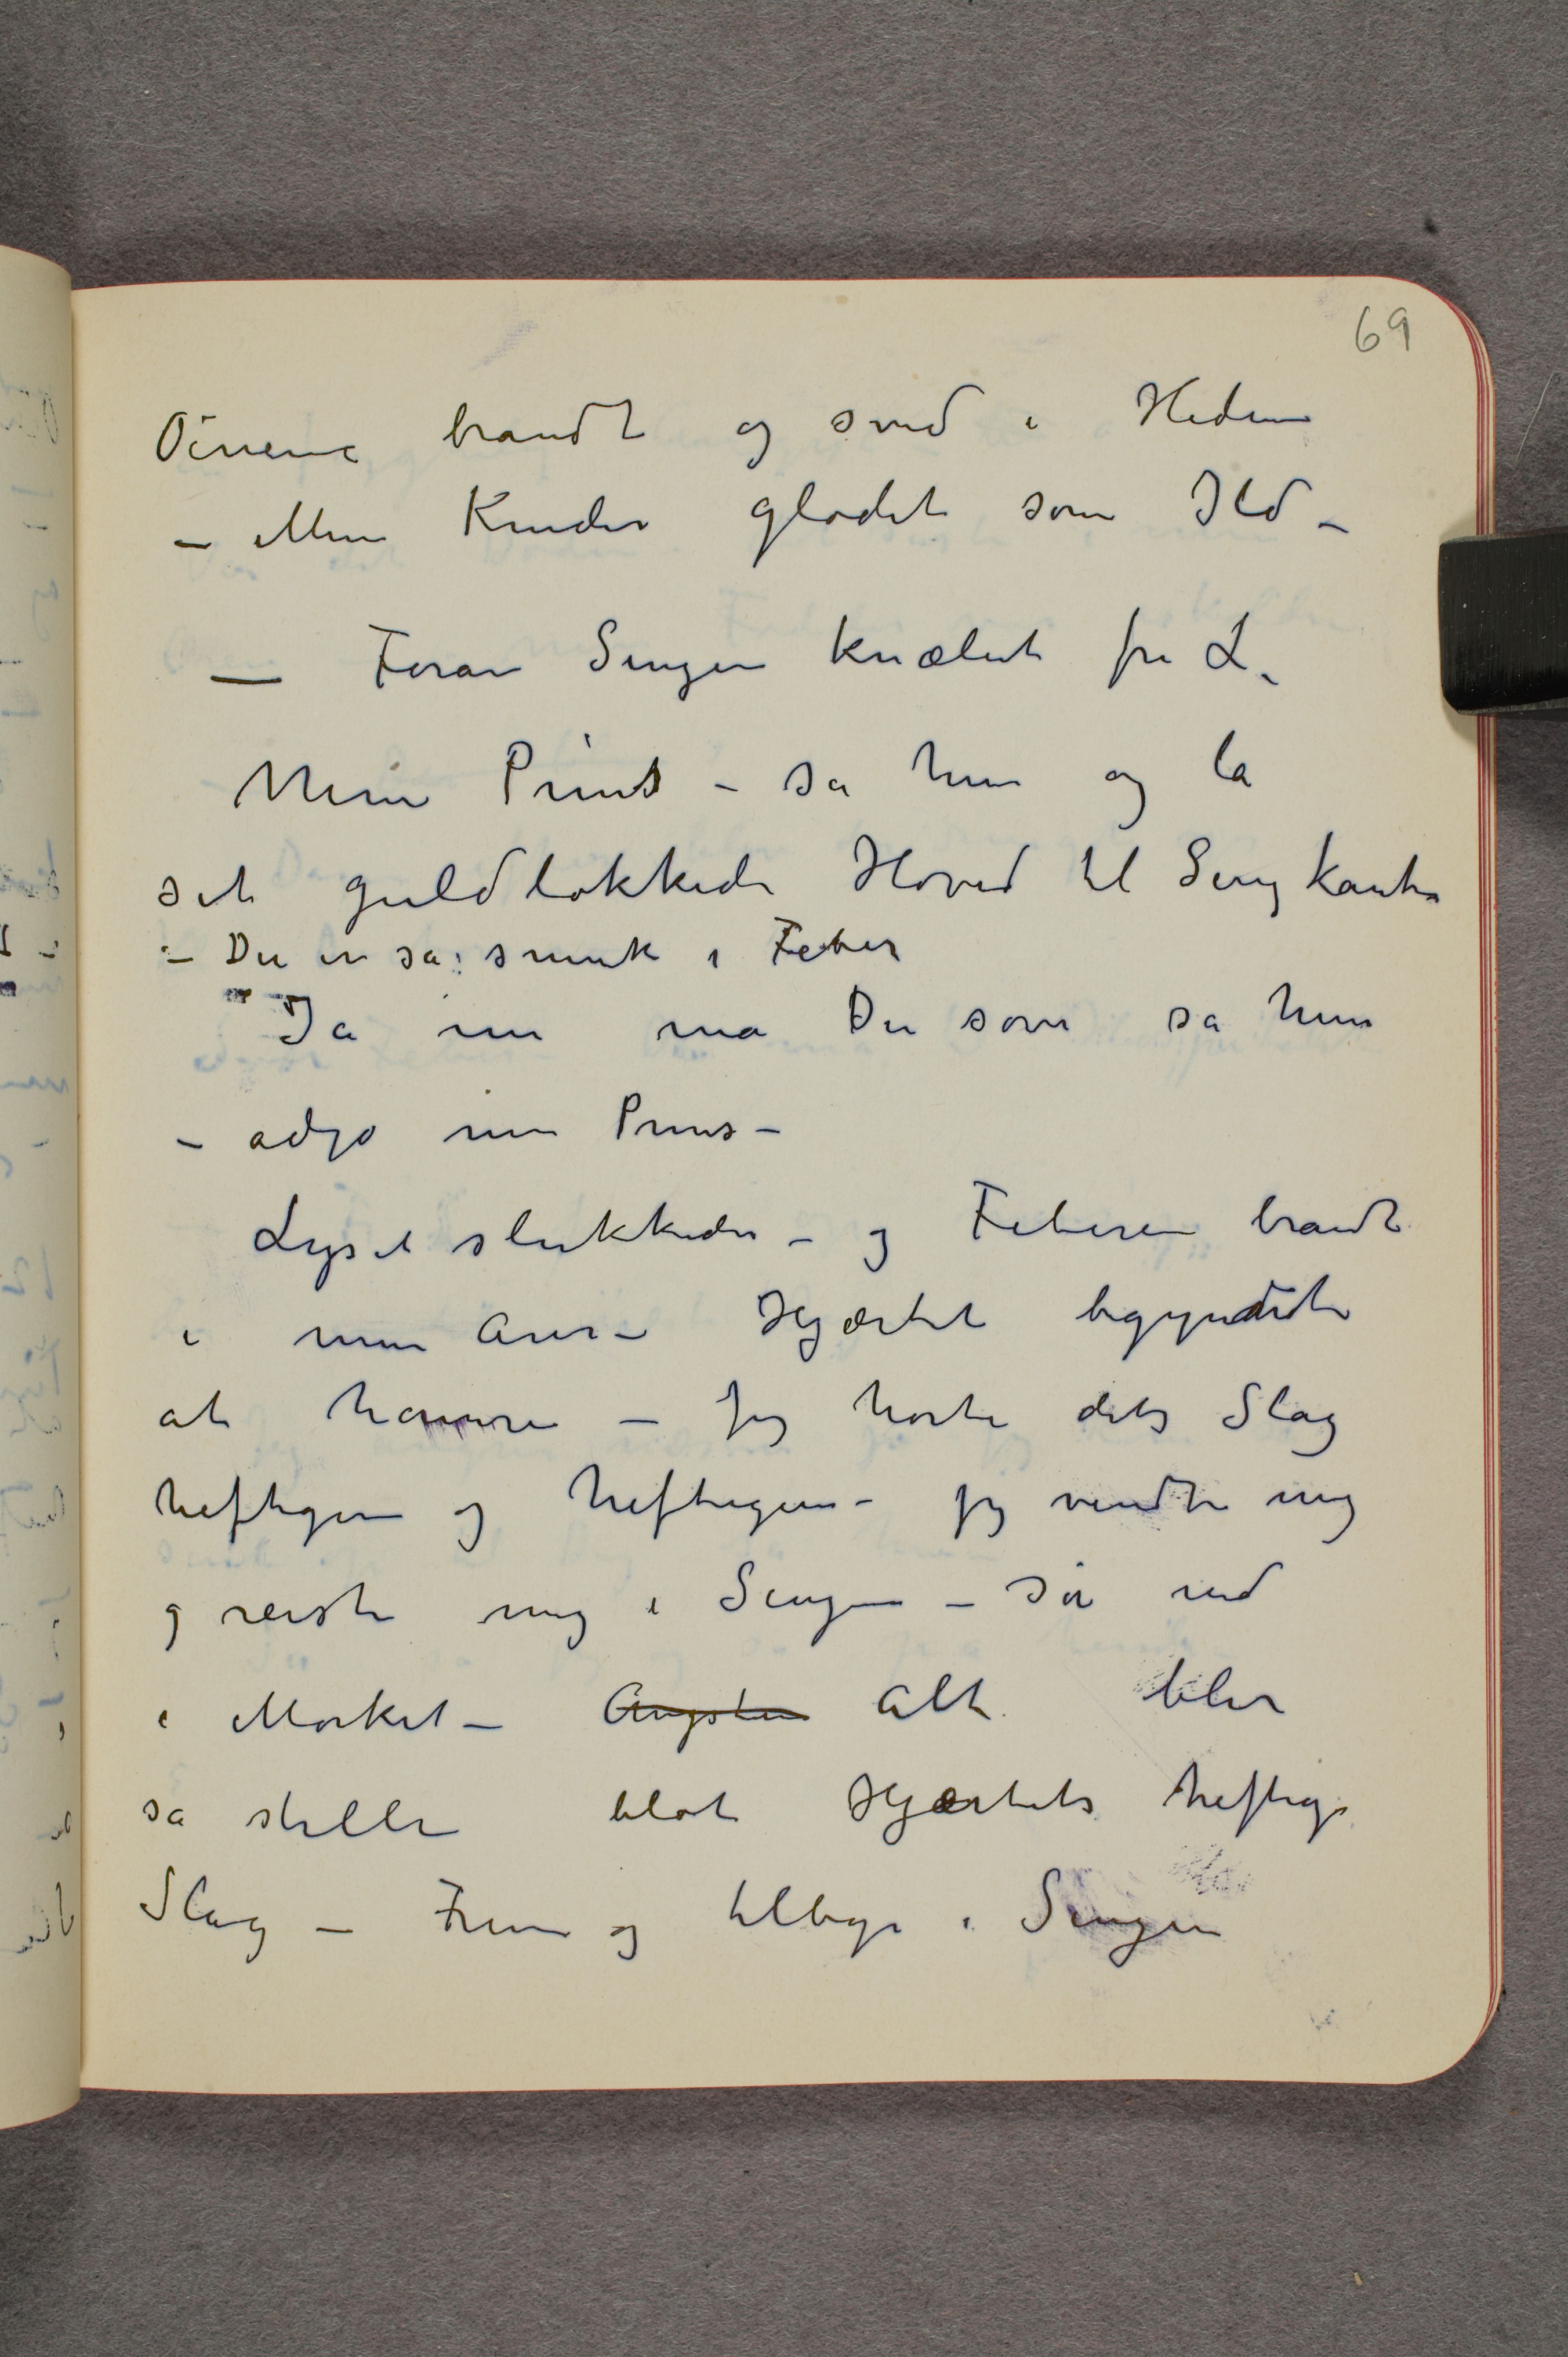 69
Øinene brandt og sved i Heden
– Mine Kinder glødet som Ild –
— Foran Sengen knælet frk L.
Min Prins – sa hun og la
sit guldlokkede Hoved til Sengkanten
– Du er så smuk i Feber
Ja nu må Du sove sa hun
– adjø min Prins –
Lyset slukkedes – og Feberen brandt
i mine Årer – Hjærtet begyndte
at hamre – jeg hørte dets Slag
heftigere og heftigere – jeg vendte mig
og reiste mig i Sengen – så ud
i Mørket – Angsten Alt blev
så stille blot Hjærtets heftige
Slag – Frem og tilbage i Sengen